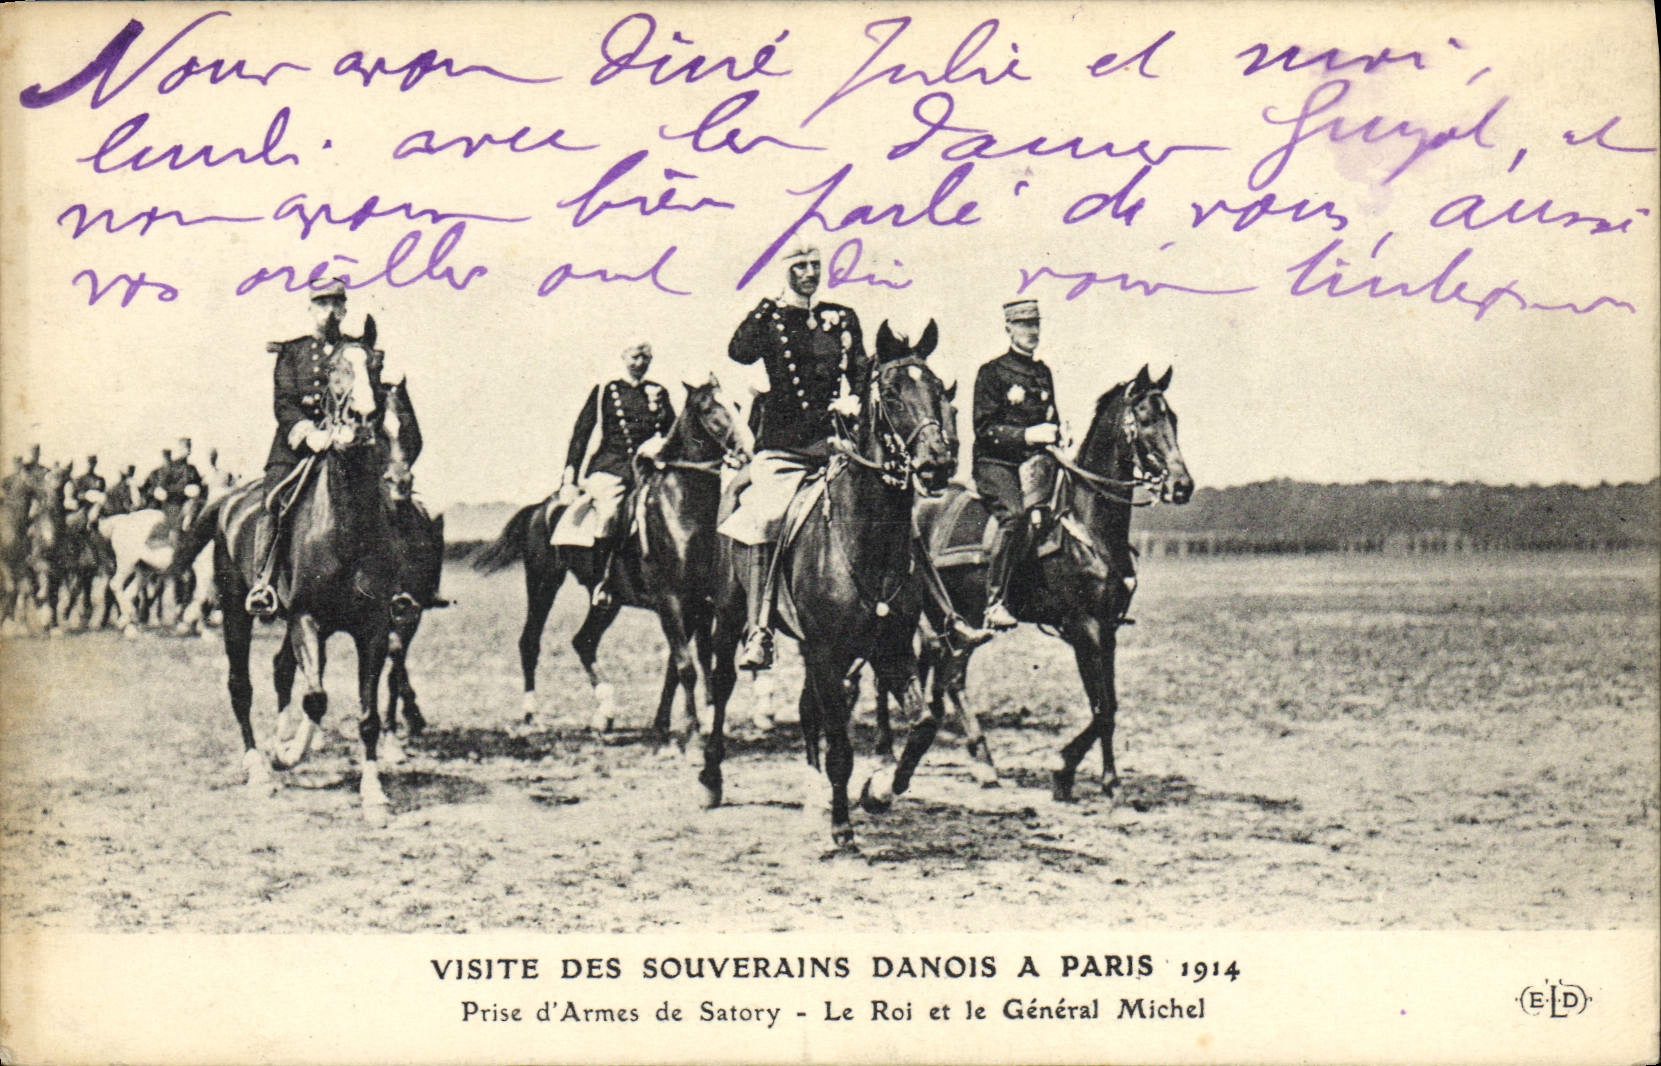 Nous avons diné Julie et moi,
lundi. avec les dames Guyot, et
nous avons bien parlé de vous, aussi
vos oreilles ont du vous tinter
VISITE DES SOUVERAINS DANOIS A PARIS 1914
Prise d'Armes de Satory - Le Roi et le Général Michel
E.L.D